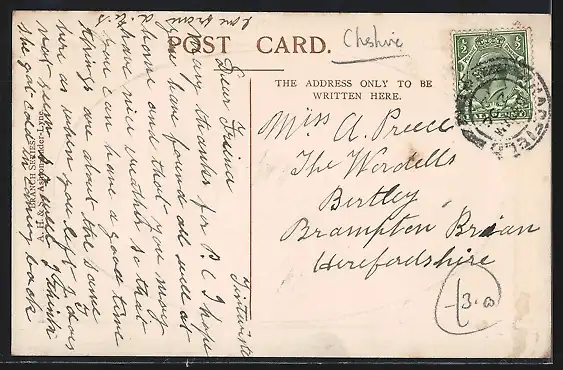 POST CARD.
Cheshire
THE ADDRESS ONLY TO BE
WRITTEN HERE.
Miss A. Preece
The Werdells
Birtley
Brampton Brian
Herefordshire
Tintwistle
Dear Friend
Many thanks for P. C I hope
you have found all well at
home and that you may
have nice weather so that
you can have a good time
things are about the same
here as when you left I does
not I think
she got cold coming back
BRANCH SERIES
A. H. & S.